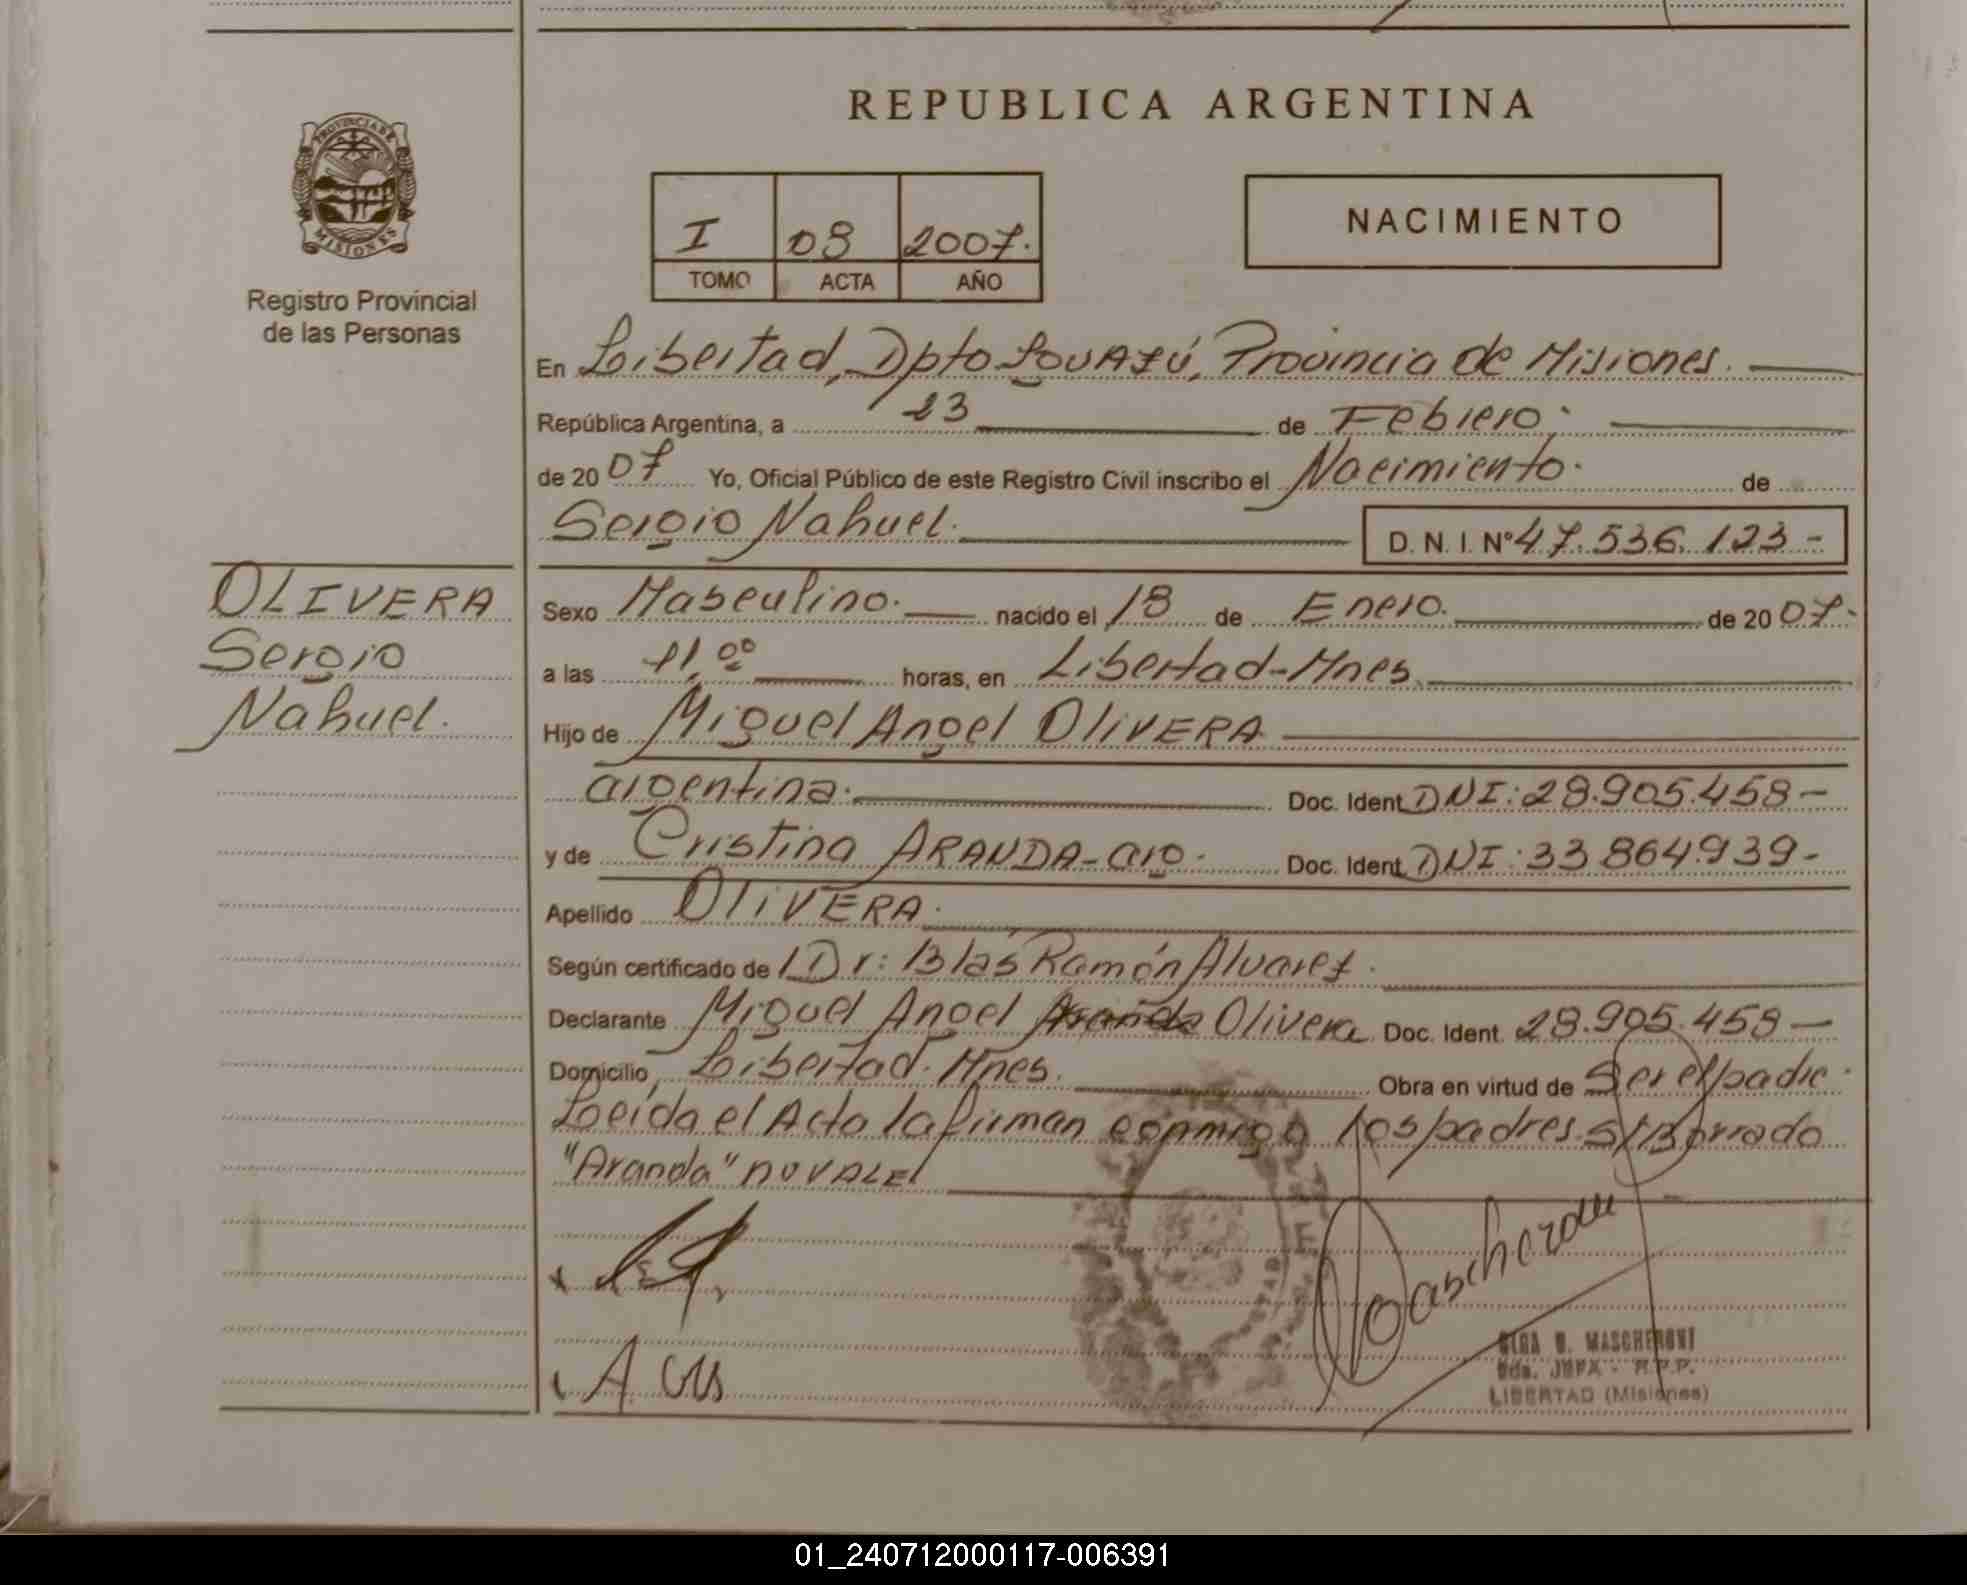 REPUBLICA ARGENTINA
PROVINCIA DE MISIONES
Registro Provincial
de las Personas
I 08 2007.
TOMO ACTA AÑO
NACIMIENTO
En Libertad, Dpto IGUAZÚ, Provincia de Misiones.
República Argentina, a 23 de Febrero.
de 20 07 Yo, Oficial Público de este Registro Civil inscribo el Nacimiento. de
Sergio Nahuel. D. N. I. Nº 47.536.123-
OLIVERA
Sergio
Nahuel.
Sexo Masculino. nacido el 18 de Enero. de 20 07.
a las 11.00 horas, en Libertad-Mnes.
Hijo de Miguel Angel OLIVERA
argentina. Doc. Ident. DNI: 28.905.458-
y de Cristina ARANDA-arg. Doc. Ident. DNI: 33.864.939-
Apellido OLIVERA.
Según certificado de Dr: Blás Ramón Alvarez.
Declarante Miguel Angel Aranda Olivera Doc. Ident. 28.905.458-
Domicilio, Libertad. Mnes. Obra en virtud de Ser el padre.
Leída el Acta la firman conmigo los padres. S/Borrado
"Aranda" NO VALE
A Cris
MASCHERONI
LIBERTAD (Misiones)
01_240712000117-006391